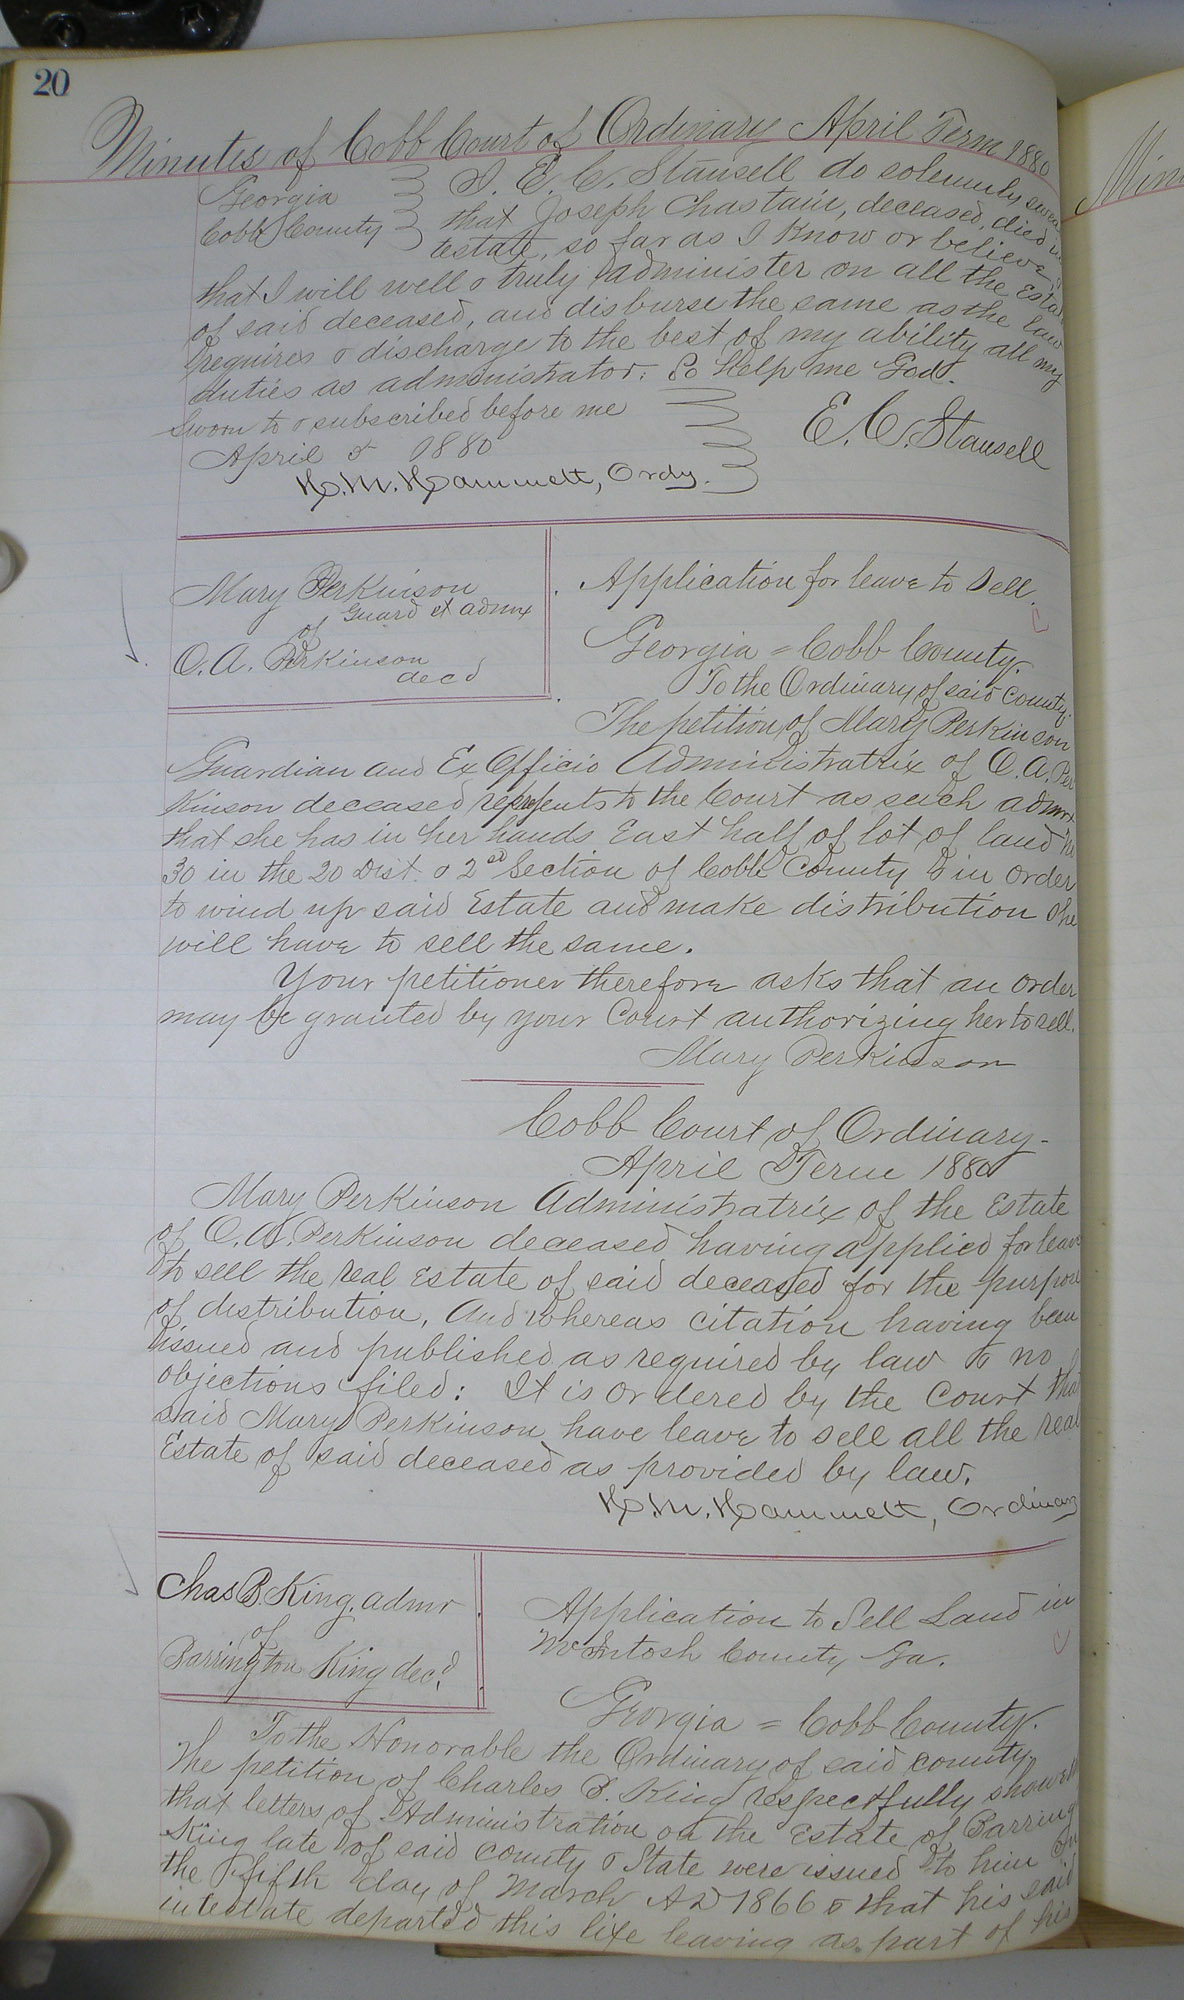 20
Minutes of Cobb Court of Ordinary April Term 1880
Georgia
Cobb County
I. E. C. Stansell do solemnly swear
that Joseph Chastain, deceased, died in
testate, so far as I know or believe
that I will well & truly administer on all the Estate
of said deceased, and disburse the same as the law
requires & discharge to the best of my ability all my
duties as administrator. So help me God.
Sworn to & subscribed before me
April 5 1880
E. C. Stansell
H. M. Hammett, Ordy.
Mary Perkinson
Guard et admx
of
O. A. Perkinson
decd
Application for leave to Sell.
Georgia = Cobb County.
To the Ordinary of said County.
The petition of Mary Perkinson
Guardian and Ex Officio Administratrix of O. A. Per
kinson deceased represents to the Court as such admrx
that she has in her hands East half of lot of land No
30 in the 20 Dist. & 2nd Section of Cobb County & in order
to wind up said Estate and make distribution She
will have to sell the same.
Your petitioner therefore asks that an order
may be granted by your Court authorizing her to sell.
Mary Perkinson
Cobb Court of Ordinary -
April Term 1880
Mary Perkinson Administratrix of the Estate
of O. A. Perkinson deceased having applied for leave
to sell the real Estate of said deceased for the purpose
of distribution, And whereas citation having been
issued and published as required by law & no
objections filed: It is ordered by the Court that
said Mary Perkinson have leave to sell all the real
Estate of said deceased as provided by law.
H. M. Hammett, Ordinary
Chas B. King, admr
of
Barrington King decd.
Application to Sell Land in
McIntosh County Ga.
Georgia = Cobb County.
To the Honorable the Ordinary of said County.
The petition of Charles B. King respectfully showeth
that letters of Administration on the Estate of Barring
King late of said county & State were issued to him on
the fifth day of March AD 1866 & that his said
intestate departed this life leaving as part of his
Min